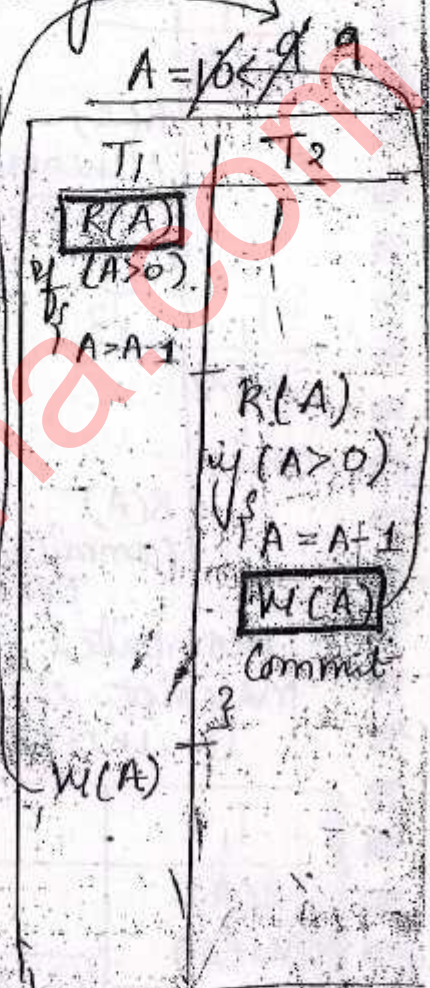 A = 10 9 9
T1 T2
R(A)
if (A>0)
{ A=A-1
R(A)
if (A>0)
{ A = A-1
W(A)
Commit
}
W(A)